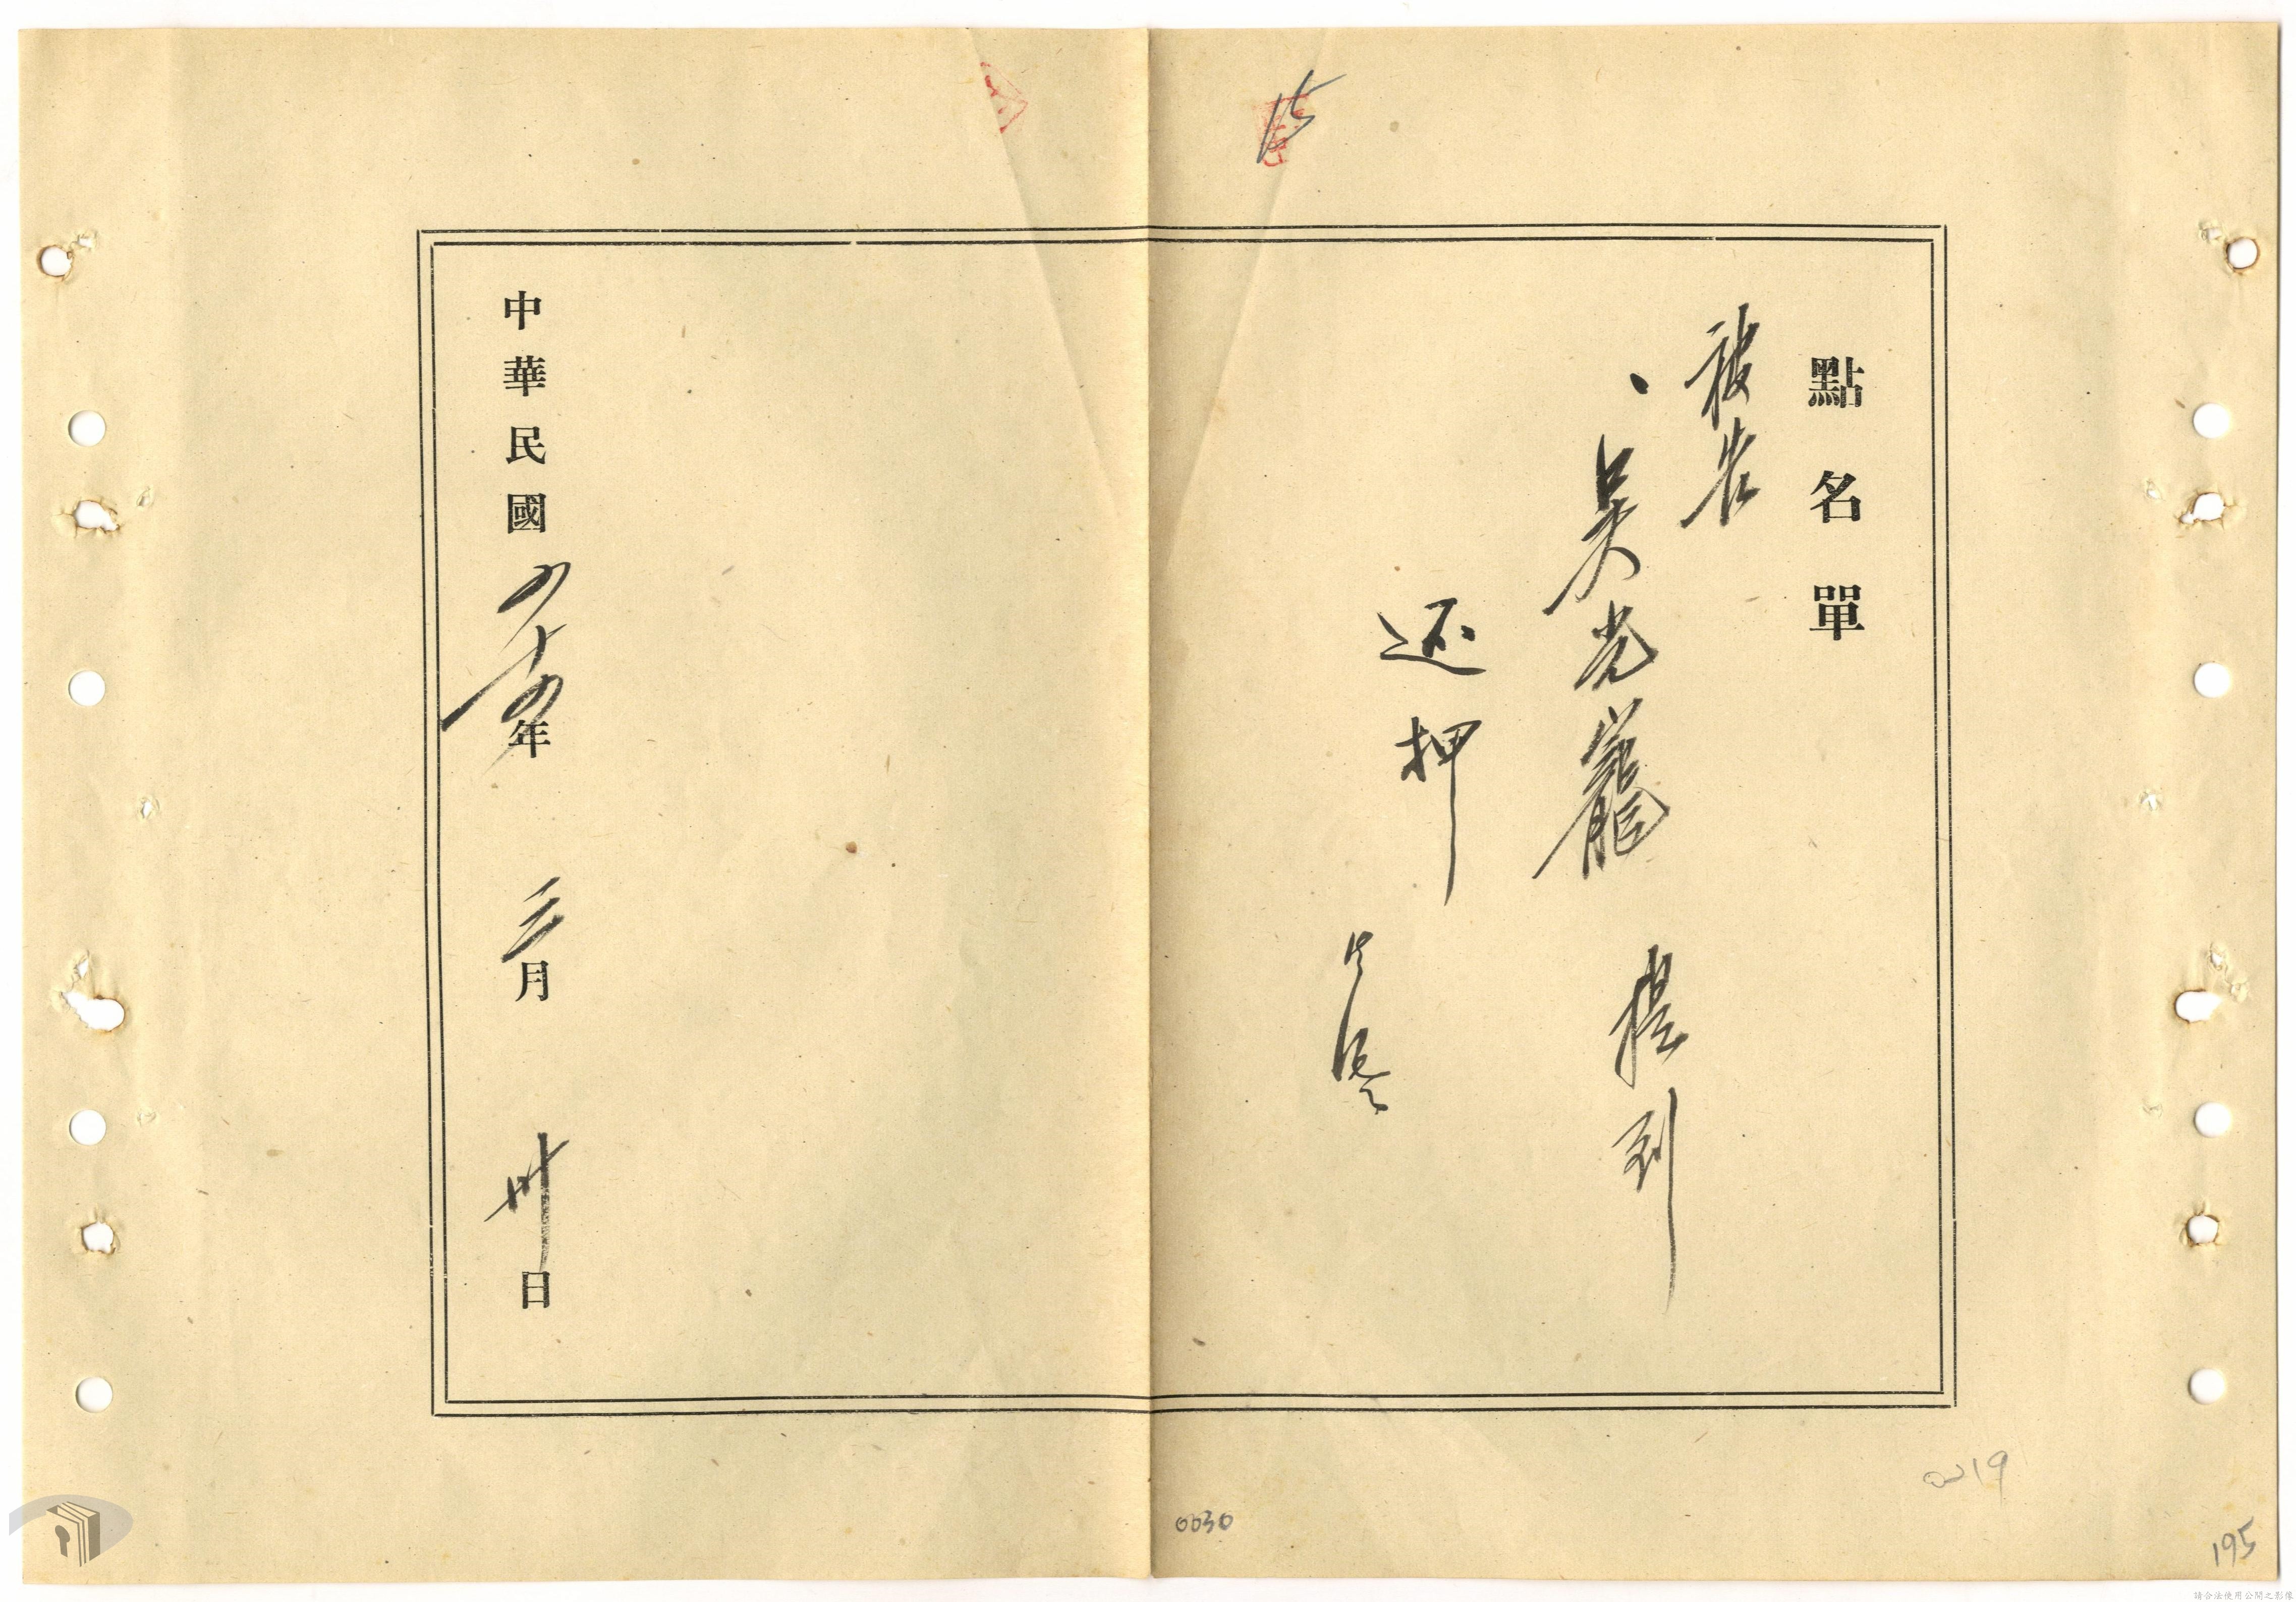 點名單
被告
、吳光龍 提到
还押
中華民國四十四年三月卅日
15
0030
0019
195
請合法使用公開之影像